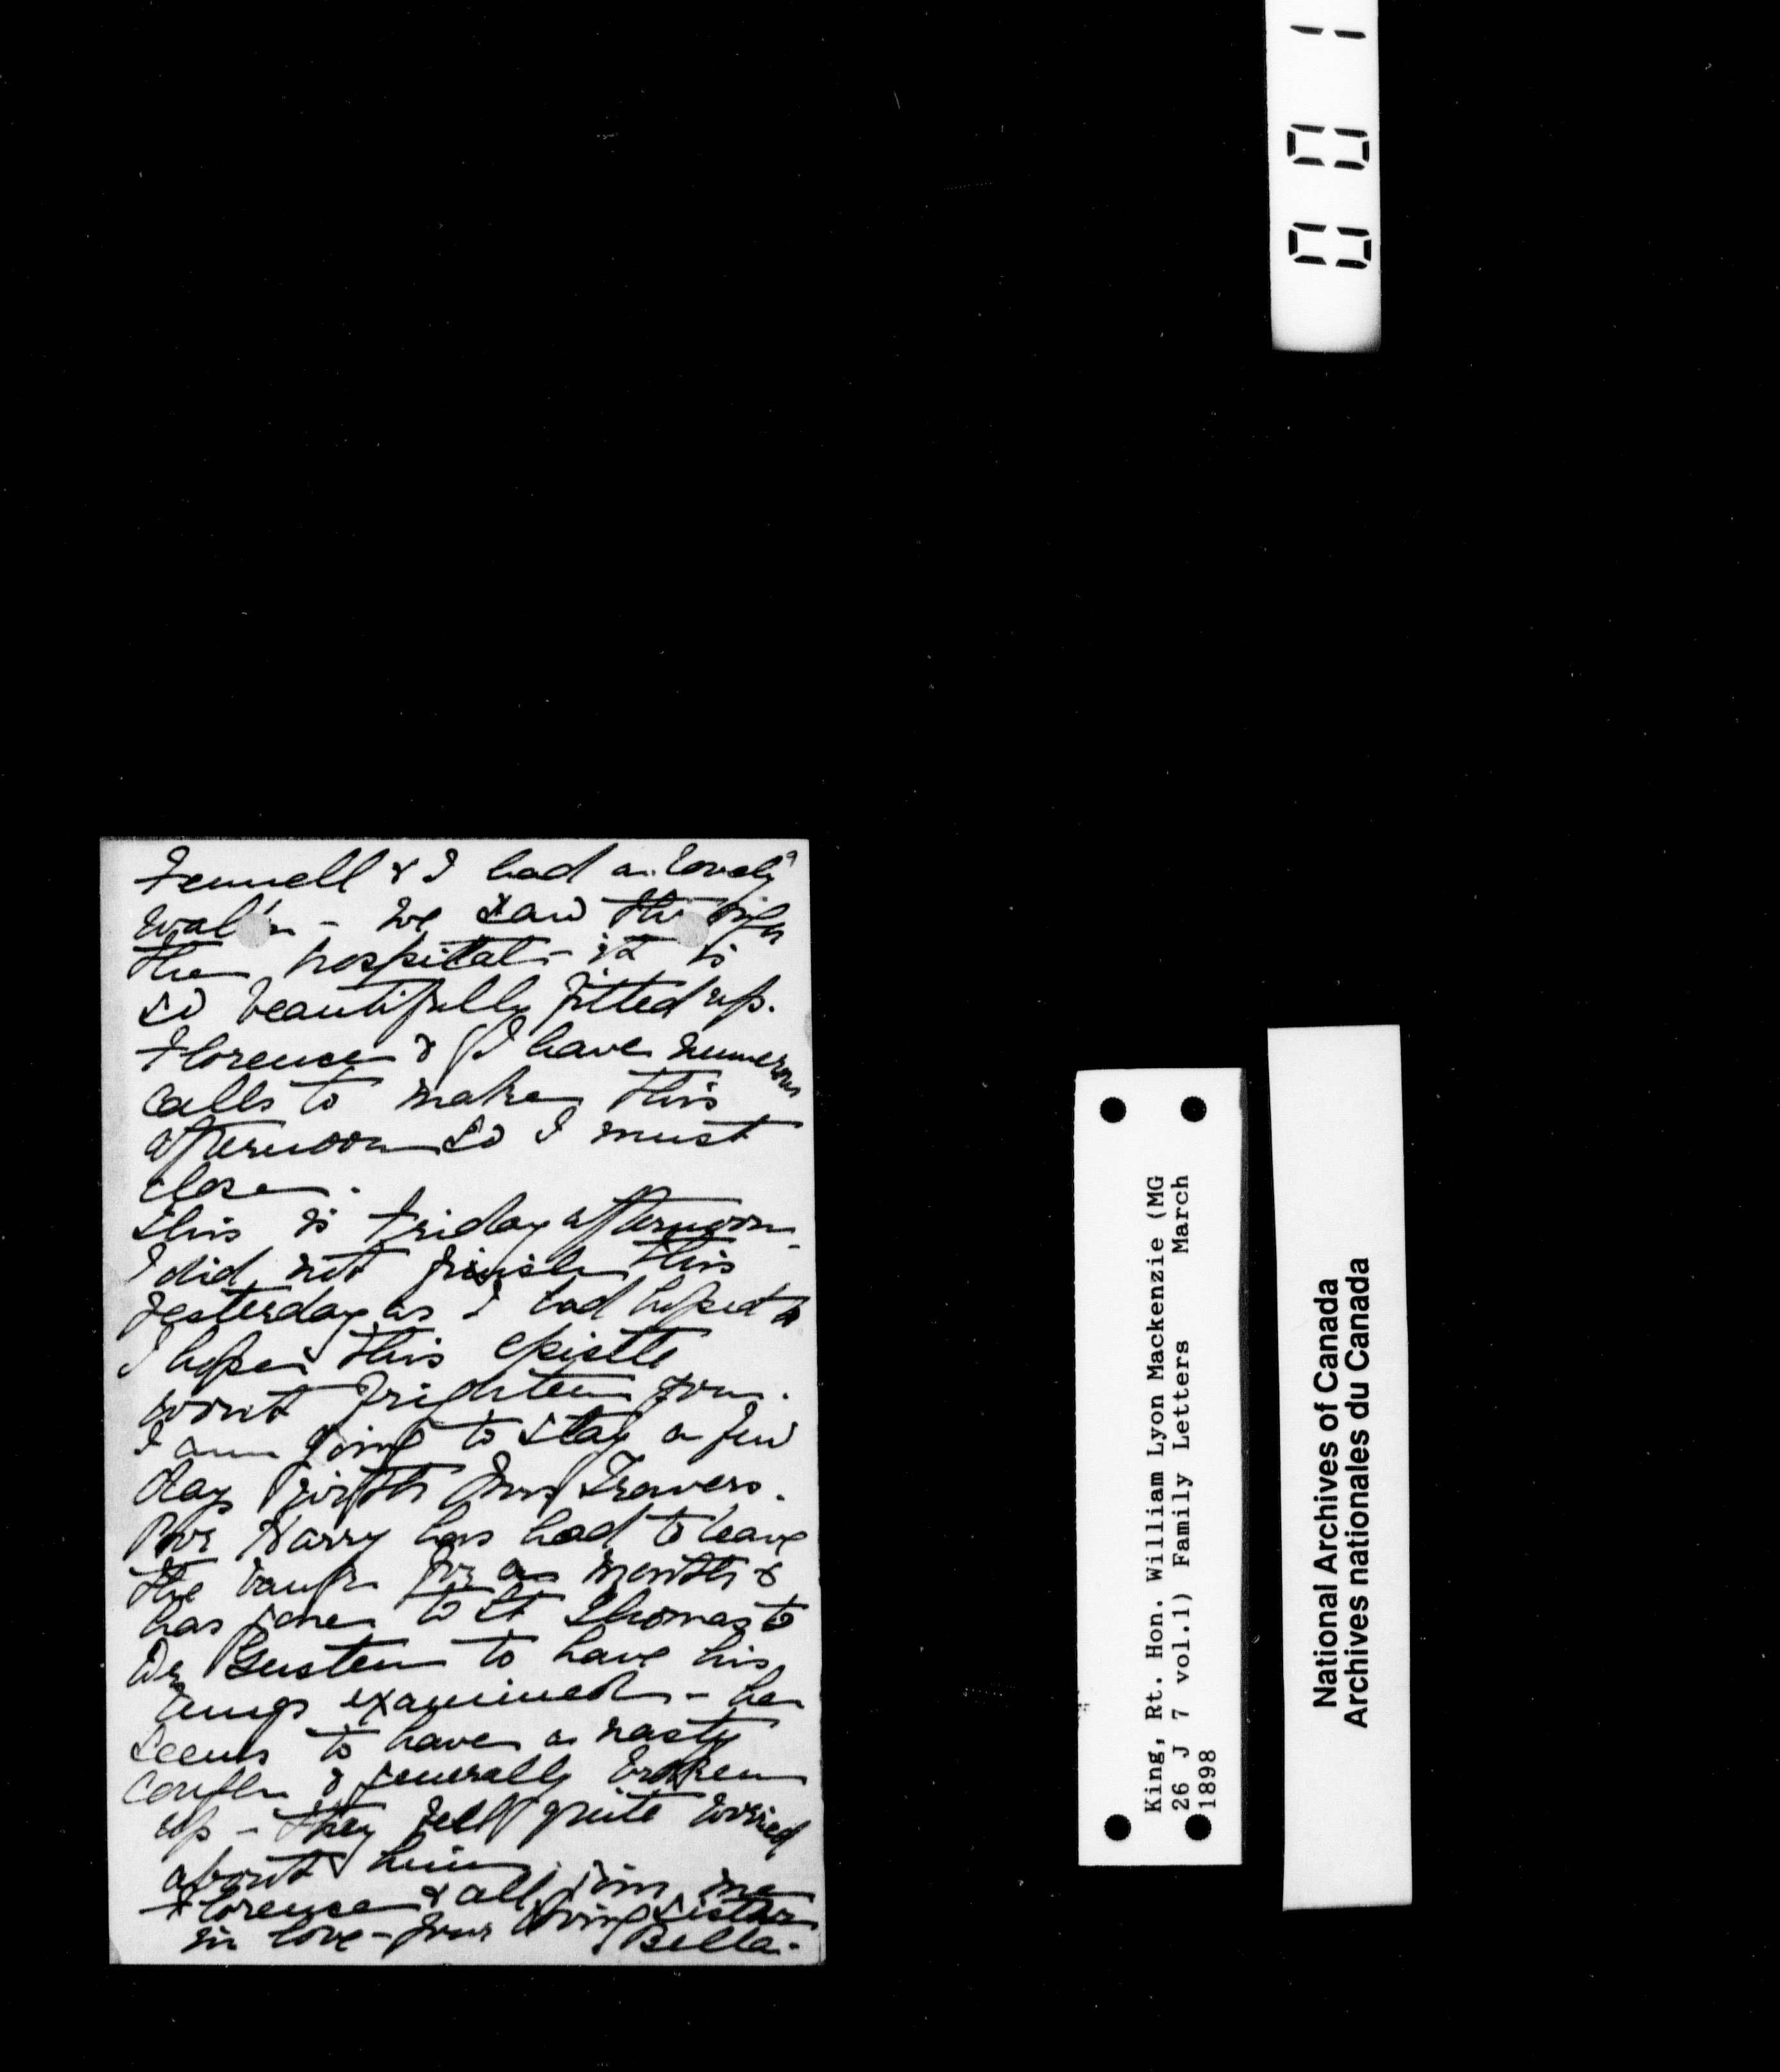 Fennell & I had a lovely
walk - we saw through
the hospital - it is
so beautifully fitted up.
Florence & I have numerous
calls to make this
afternoon so I must
close.
This is Friday afternoon
I did not finish this
yesterday as I had hoped to
I hope this epistle
won't frighten you.
I am going to stay a few
days with Mrs Travers.
Poor Harry has had to leave
the bank for a month &
has gone to St Thomas to
Dr to have his
lungs examined - he
seems to have a nasty
cough & generally broken
up - they feel quite worried
about him.
Florence & all join me
in love - Your loving sister
Bella.
001
King, Rt. Hon. William Lyon Mackenzie (MG
26 J 7 vol.1) Family Letters March
1898
National Archives of Canada
Archives nationales du Canada